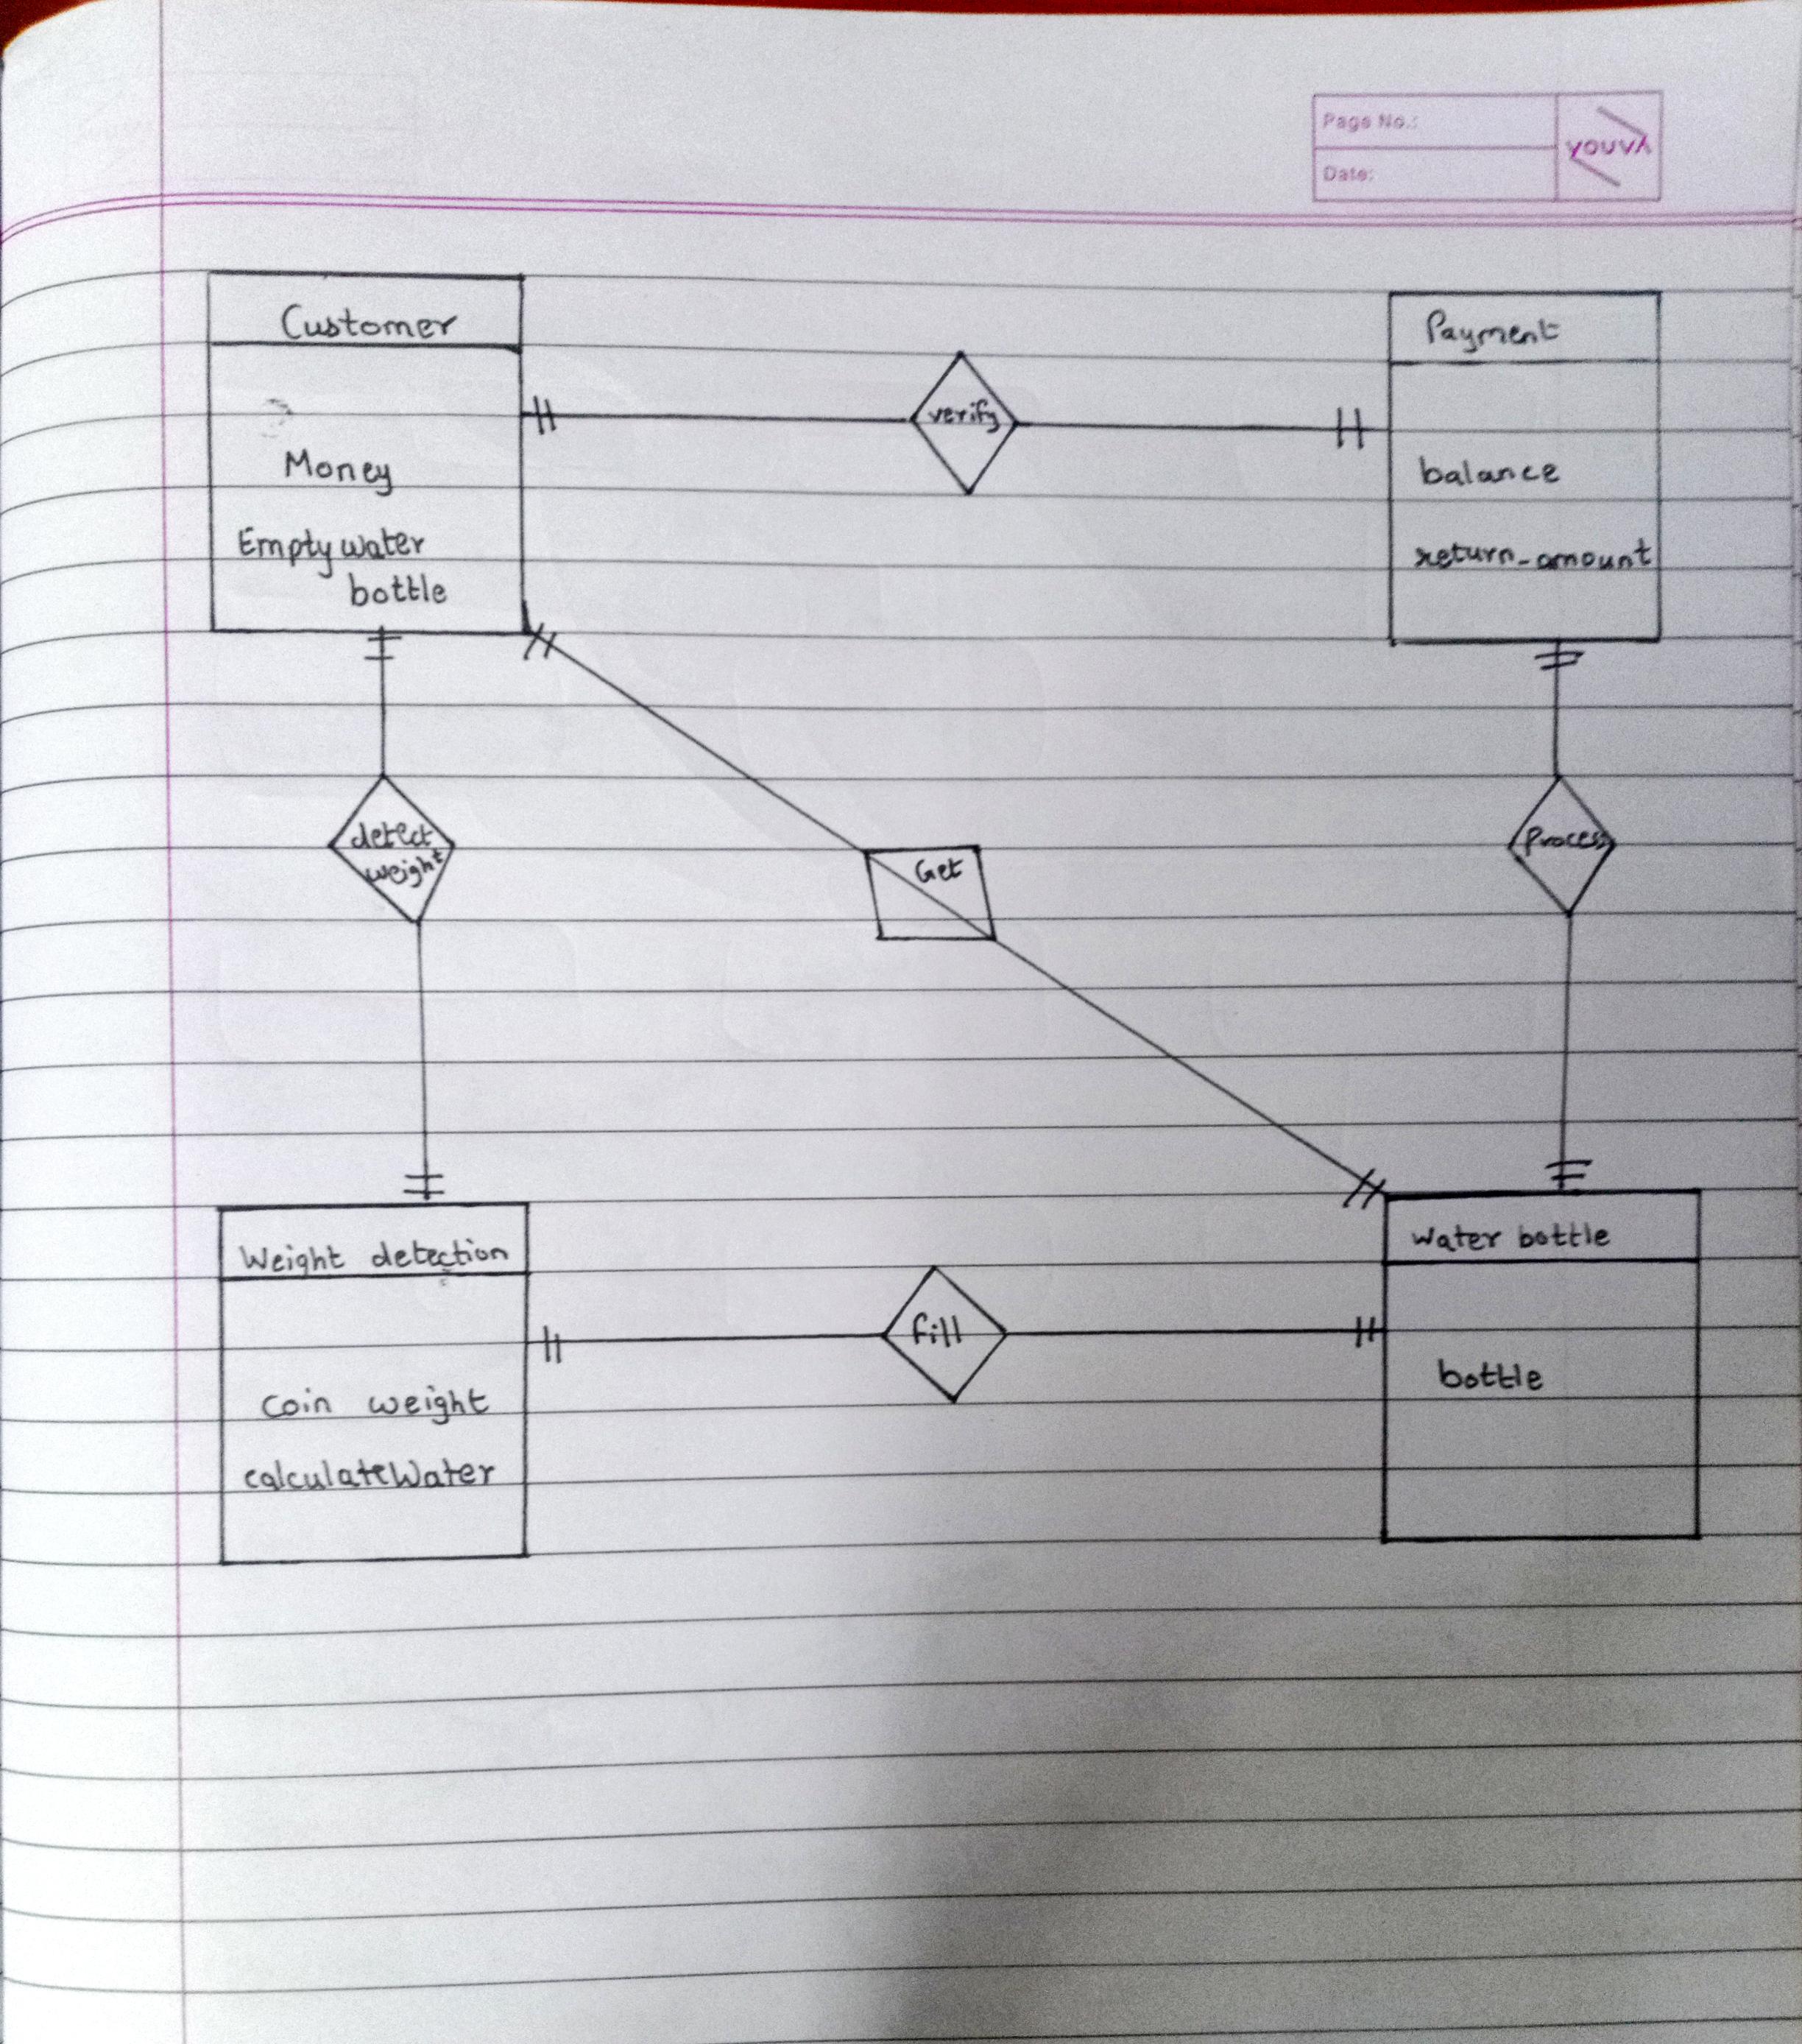 Page No.:
Date:
youva
Customer
Money
Empty water
bottle
verify
Payment
balance
return_amount
detect
weight
Get
Process
Weight detection
coin weight
calculateWater
fill
Water bottle
bottle